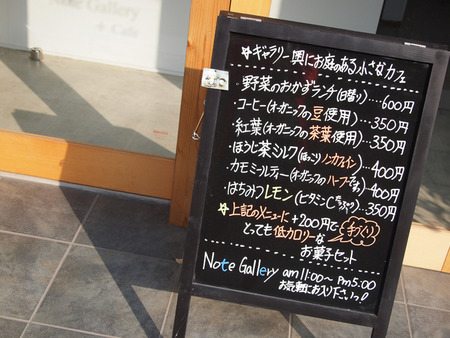 Note Gallery
+ Cafe
☆ギャラリー奥にお庭のある小さなカフェ
・野菜のおかずランチ(日替り)…600円
・コーヒー(オーガニックの豆使用)…350円
・紅葉(オーガニックの茶葉使用)…350円
・ほうじ茶ミルク(ほっこりノンカフェイン)…400円
・カモミールティー(オーガニックのハーブです)…400円
・はちみつレモン(ビタミンC)…350円
☆上記のメニューに+200円で 手づくり
とっても低カロリーな
お菓子セット
Note Gallery am11:00〜Pm5:00
お気軽にお入り下さいっ!